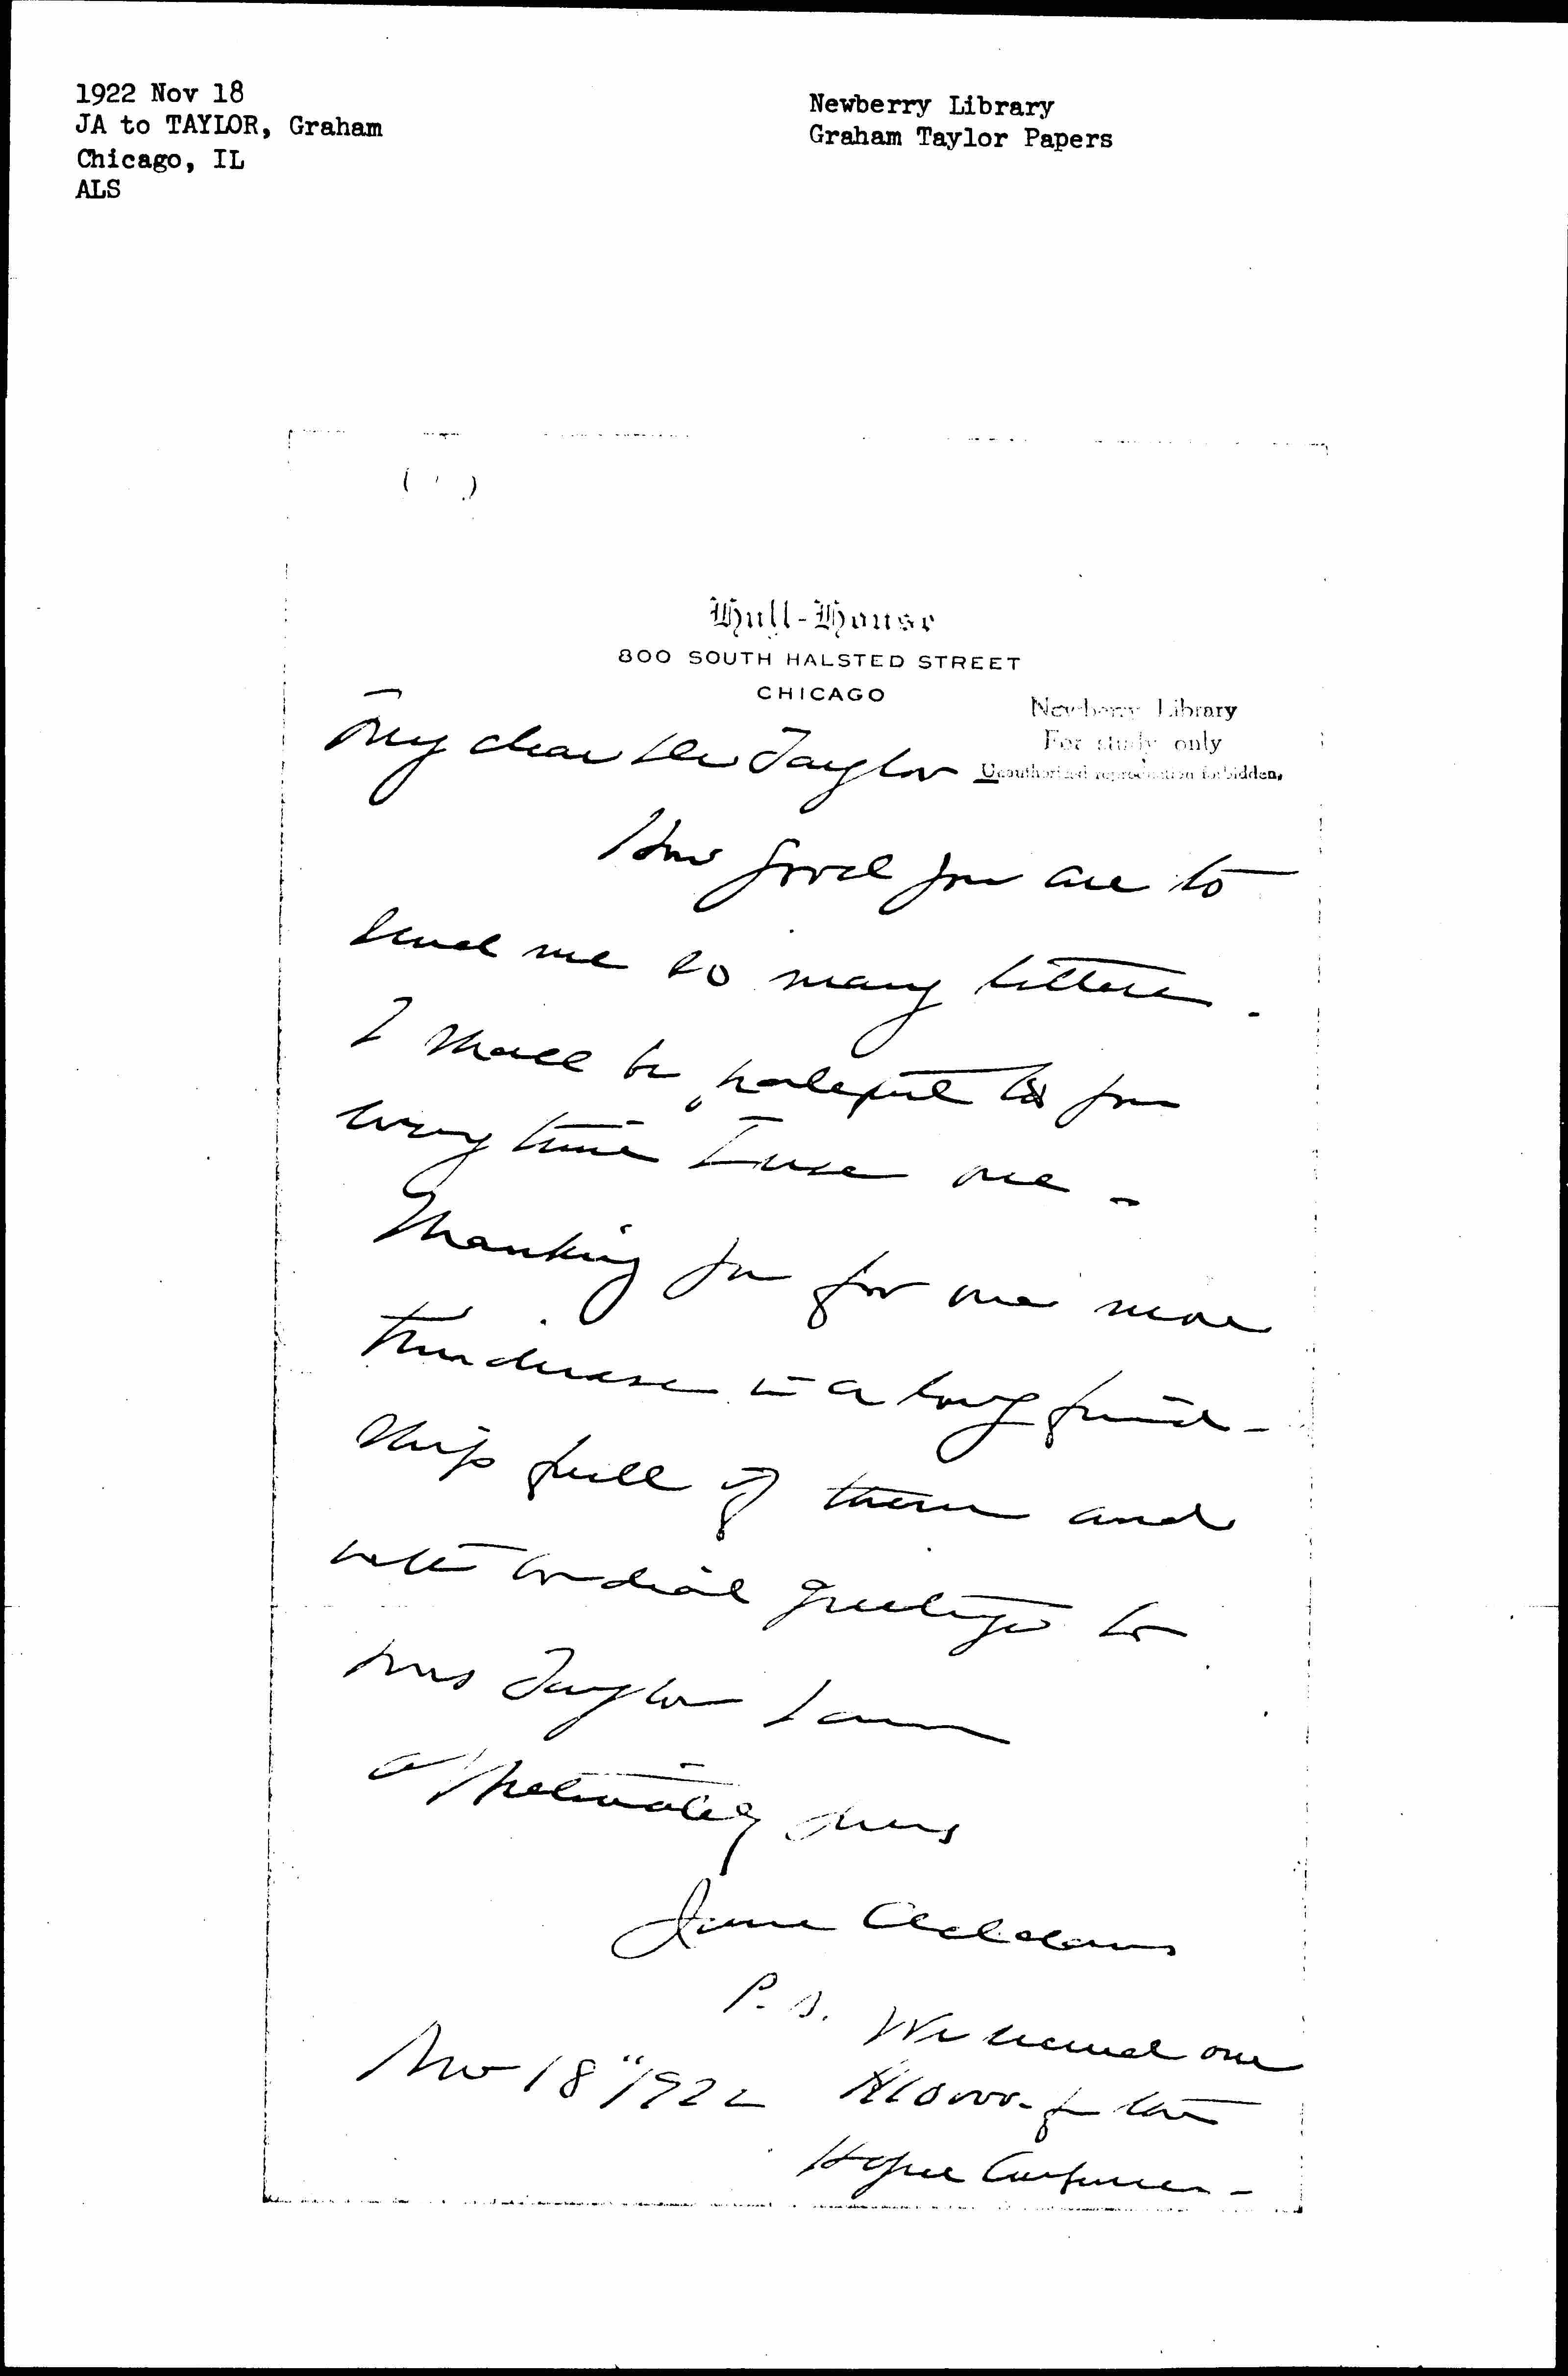 1922 Nov 18
JA to TAYLOR, Graham
Chicago, IL
ALS
Newberry Library
Graham Taylor Papers
Hull-House
800 SOUTH HALSTED STREET
CHICAGO
Newberry Library
For study only
Unauthorized reproduction forbidden.
My dear Dr Taylor
How good you are to
send me so many letters.
I shall be grateful to you
every time I use one -
Thanking you for one more
kindness in a long friend-
ship full of them and
with cordial greetings to
Mrs Taylor I am
affectionately yours
Jane Addams
P. S. We raised our
Nov 18" 1922
$10000- for the
Hague Conference -